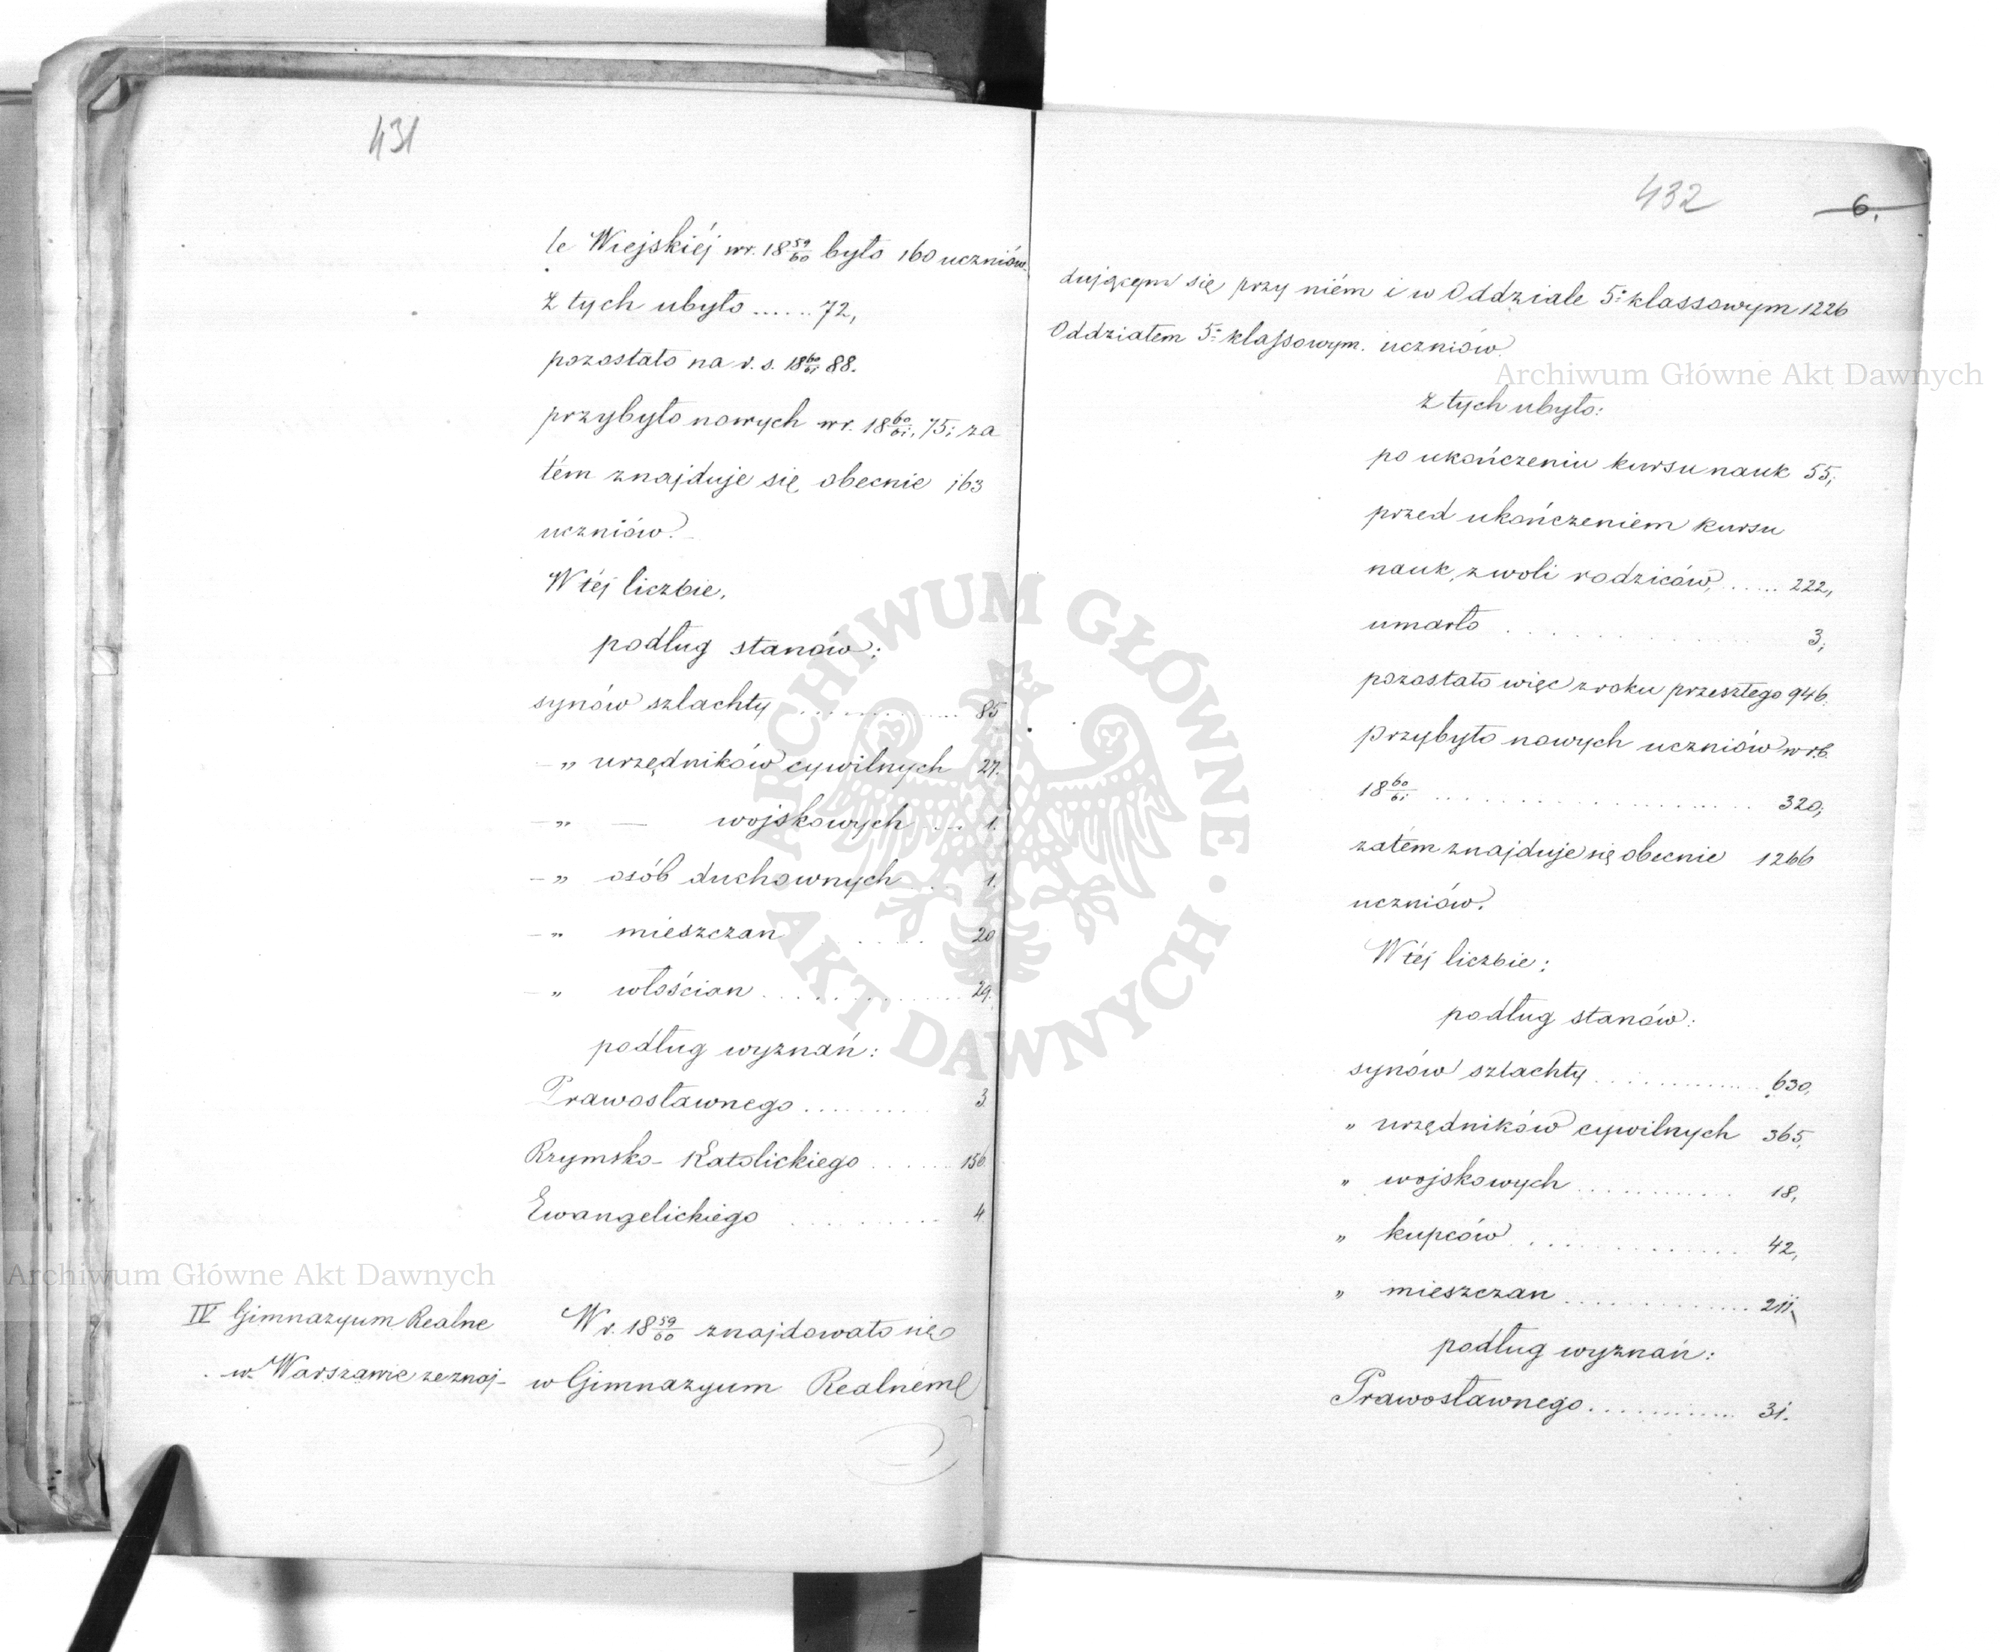 431
le Wiejskiéj w r. 18 59/60 było 160 uczniów.
z tych ubyło ...... 72,
pozostało na r. s. 18 60/61 88.
przybyło nowych w r. 18 60/61. 75; za
tém znajduje się obecnie 163
uczniów.
W téj liczbie,
podług stanów:
synów szlachty ............ 85
„ urzędników cywilnych 27.
„ — wojskowych ... 1.
„ osób duchownych ... 1.
„ mieszczan ..... 20
„ włościan ............ 29.
podług wyznań:
Prawosławnego ......... 3
Rzymsko-Katolickiego ...... 156
Ewangelickiego ......... 4
IV Gimnazyum Realne
w Warszawie ze znaj-
W r. 18 59/60 znajdowało się
w Gimnazyum Realném
432
6.
dującym się przy niém
Oddziałem 5º klassowym.
i w Oddziale 5º klassowym 1226
uczniów
z tych ubyło:
po ukończeniu kursu nauk 55;
przed ukończeniem kursu
nauk, z woli rodziców, ..... 222,
umarło ............ 3;
pozostało więc z roku przeszłego 946.
przybyło nowych uczniów w r. b.
18 60/61 ............ 320;
zatém znajduje się obecnie 1266
uczniów.
W téj liczbie:
podług stanów:
synów szlachty ............ 630,
„ urzędników cywilnych 365,
„ wojskowych ............ 18,
„ kupców ............ 42,
„ mieszczan ............ 211,
podług wyznań:
Prawosławnego ............ 31.
Archiwum Główne Akt Dawnych
Archiwum Główne Akt Dawnych
ARCHIWUM GŁÓWNE · AKT DAWNYCH ·